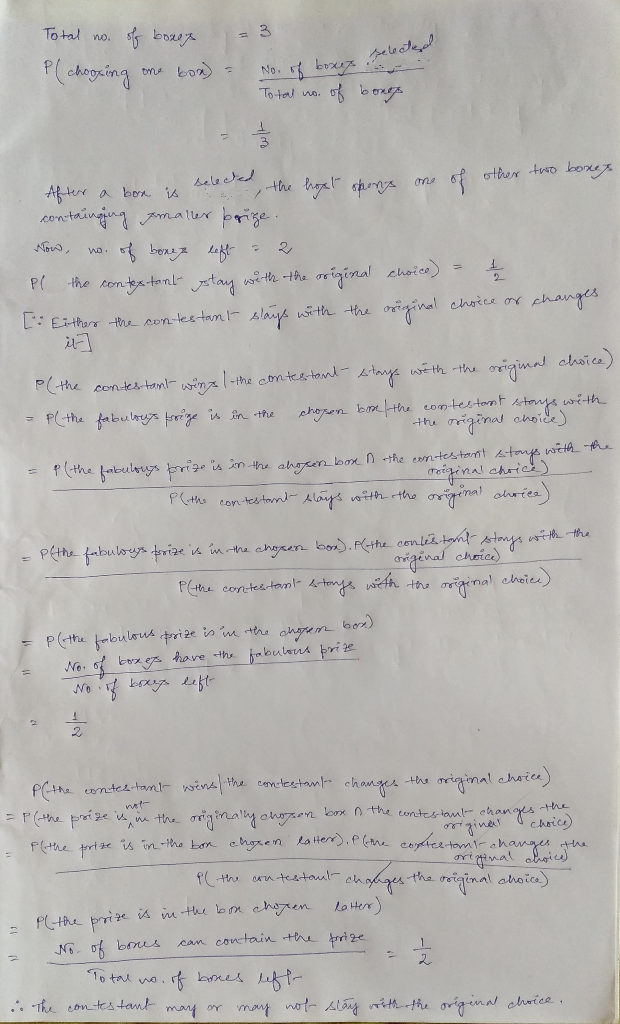 Total no. of boxes = 3
P(choosing one box) = No. of boxes selected
Total no. of boxes
= 1/3
After a box is selected, the host opens one of other two boxes
containging smaller prize.
Now, no. of boxes left = 2
P( the contestant stay with the original choice) = 1/2
[∵ Either the contestant stays with the original choice or changes
it]
P(the contestant wins | the contestant stays with the original choice)
= P(the fabulous prize is in the chosen box | the contestant stays with
the original choice)
= P(the fabulous prize is in the chosen box ∩ the contestant stays with the
original choice)
P(the contestant stays with the original choice)
= P(the fabulous prize is in the chosen box). P(the contestant stays with the
original choice)
P(the contestant stays with the original choice)
= P(the fabulous prize is in the chosen box)
= No. of boxes have the fabulous prize
No. of boxes left
= 1/2
P(the contestant wins | the contestant changes the original choice)
= P(the prize is not in the originally chosen box ∩ the contestant changes the
original choice)
= P(the prize is in the box chosen latter). P(the contestant changes the
original choice)
P( the contestant changes the original choice)
= P(the prize is in the box chosen latter)
= No. of boxes can contain the prize = 1/2
Total no. of boxes left
∴ The contestant may or may not stay with the original choice.